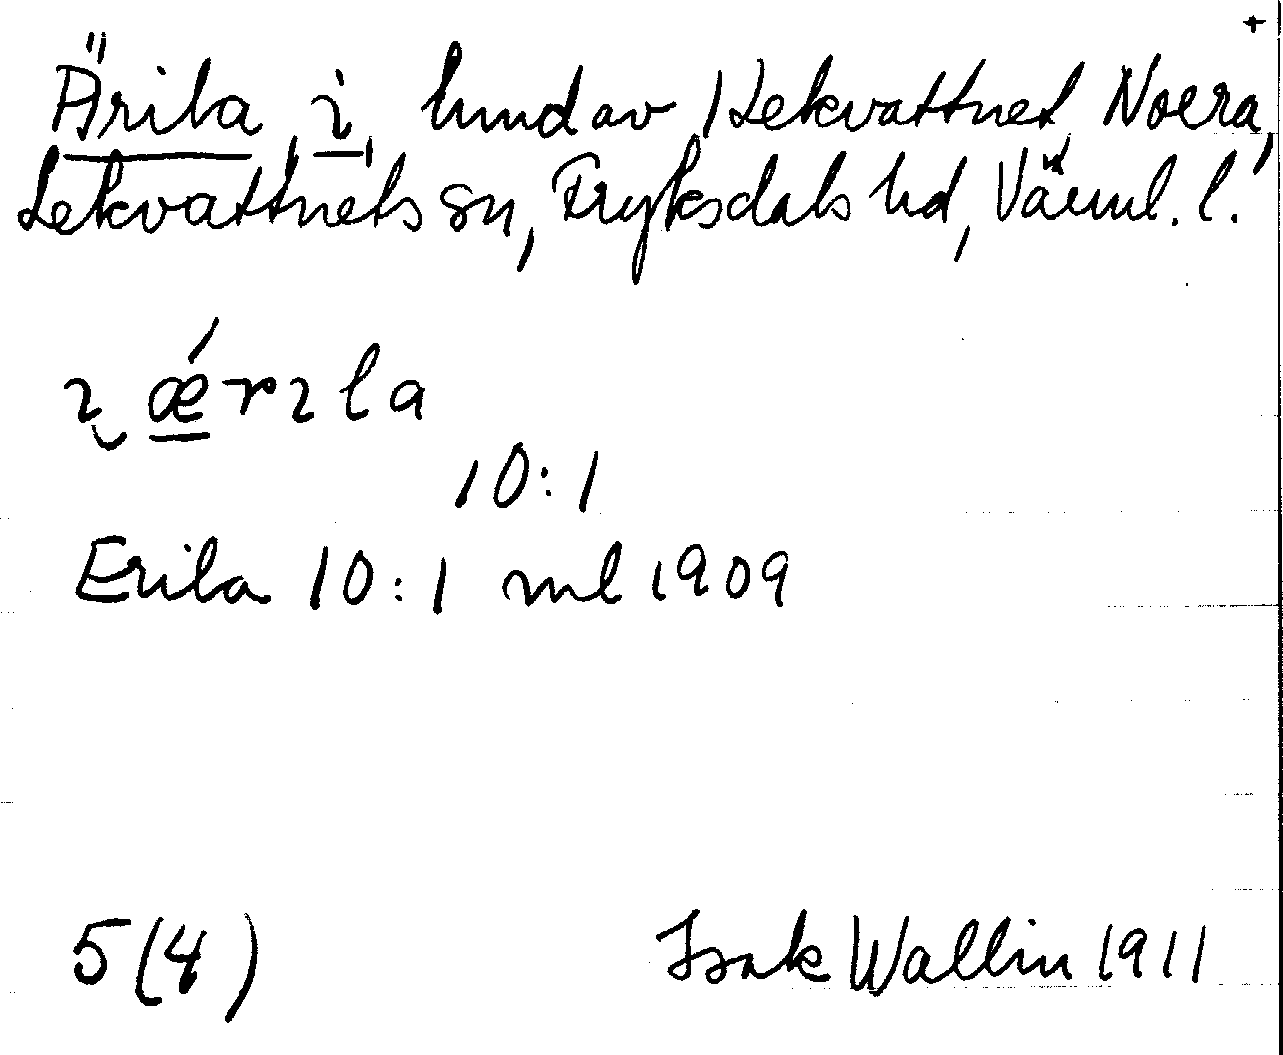 +
Ärila, i, hmd av 1 Lekvattnet Norra,
Lekvattnets sn, Fryksdals hd, Värml. l.
ɩ ǽrɩla
10:1
Erila 10:1 ml 1909
5(4)
Isak Wallin 1911